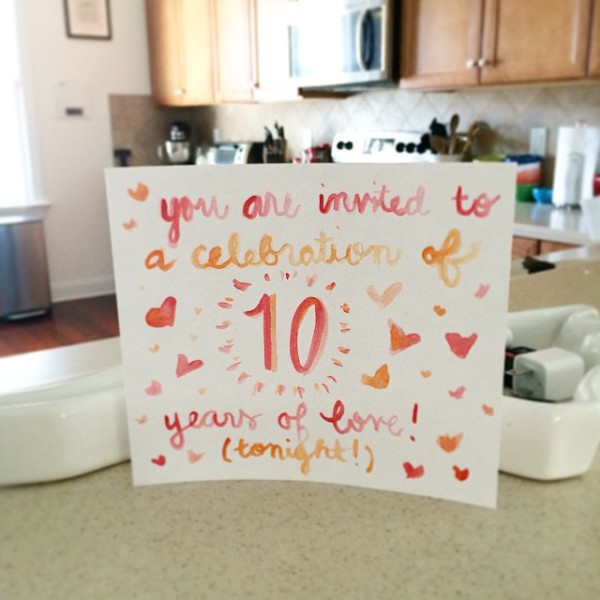 you are invited to
a celebration of
10
years of love!
(tonight!)